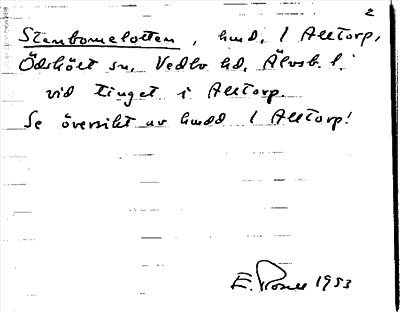 2
Stenbomelotten, hmd, 1 Alltorp,
Ödskölt sn, Vedbo hd, Älvsb. l.
vid tinget i Alltorp.
Se översikt av hmdd 1 Alltorp!
E. Rosell 1953